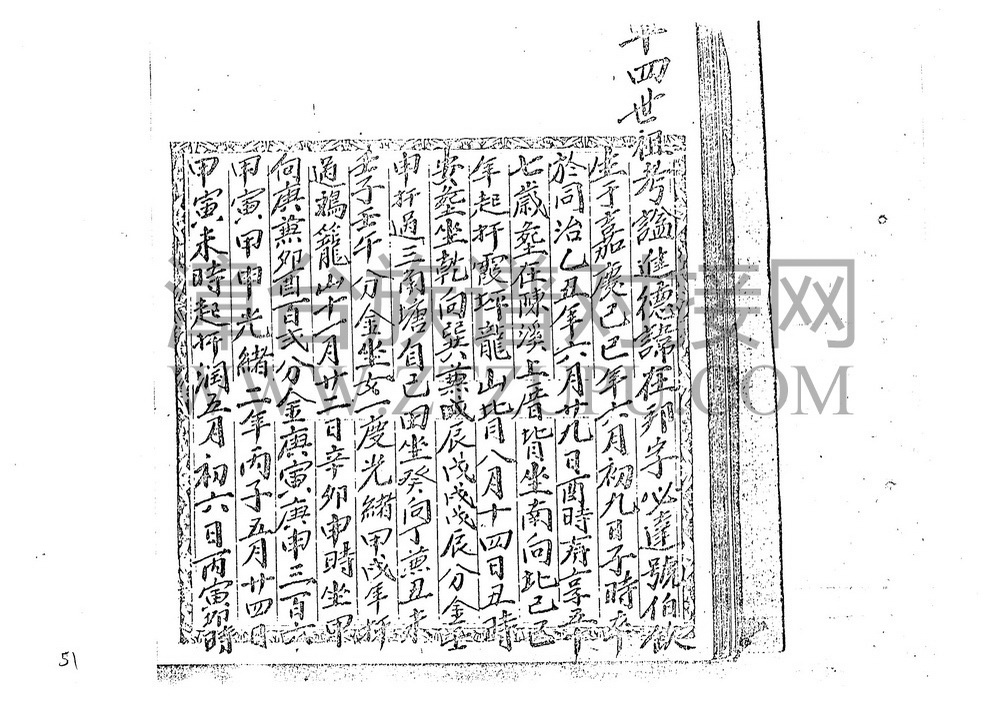 十四世祖考謚進德諱在邦字必達號伯歡
生于嘉慶己巳年六月初九日子時卒
於同治乙丑年六月廿九日酉時有享五十
七歲塟在陳溪上厝皆坐南向北己巳
年起扦霞坪龍山背八月十四日丑時
安塟坐乾向巽兼戌辰戊戌戊辰分金
申扦過三南塘自己田坐癸向丁兼丑未
壬子壬午分金坐女一度光緒甲戌年扦
過鵝籠山十一月廿二日辛卯申時坐甲
向庚兼卯酉百弍分金庚寅庚申三百六
甲寅甲申光緒二年丙子五月廿四日
甲寅未時起扦润五月初六日丙寅卯時
漳台族谱对接网
WWW.ZTZUPU.COM
51